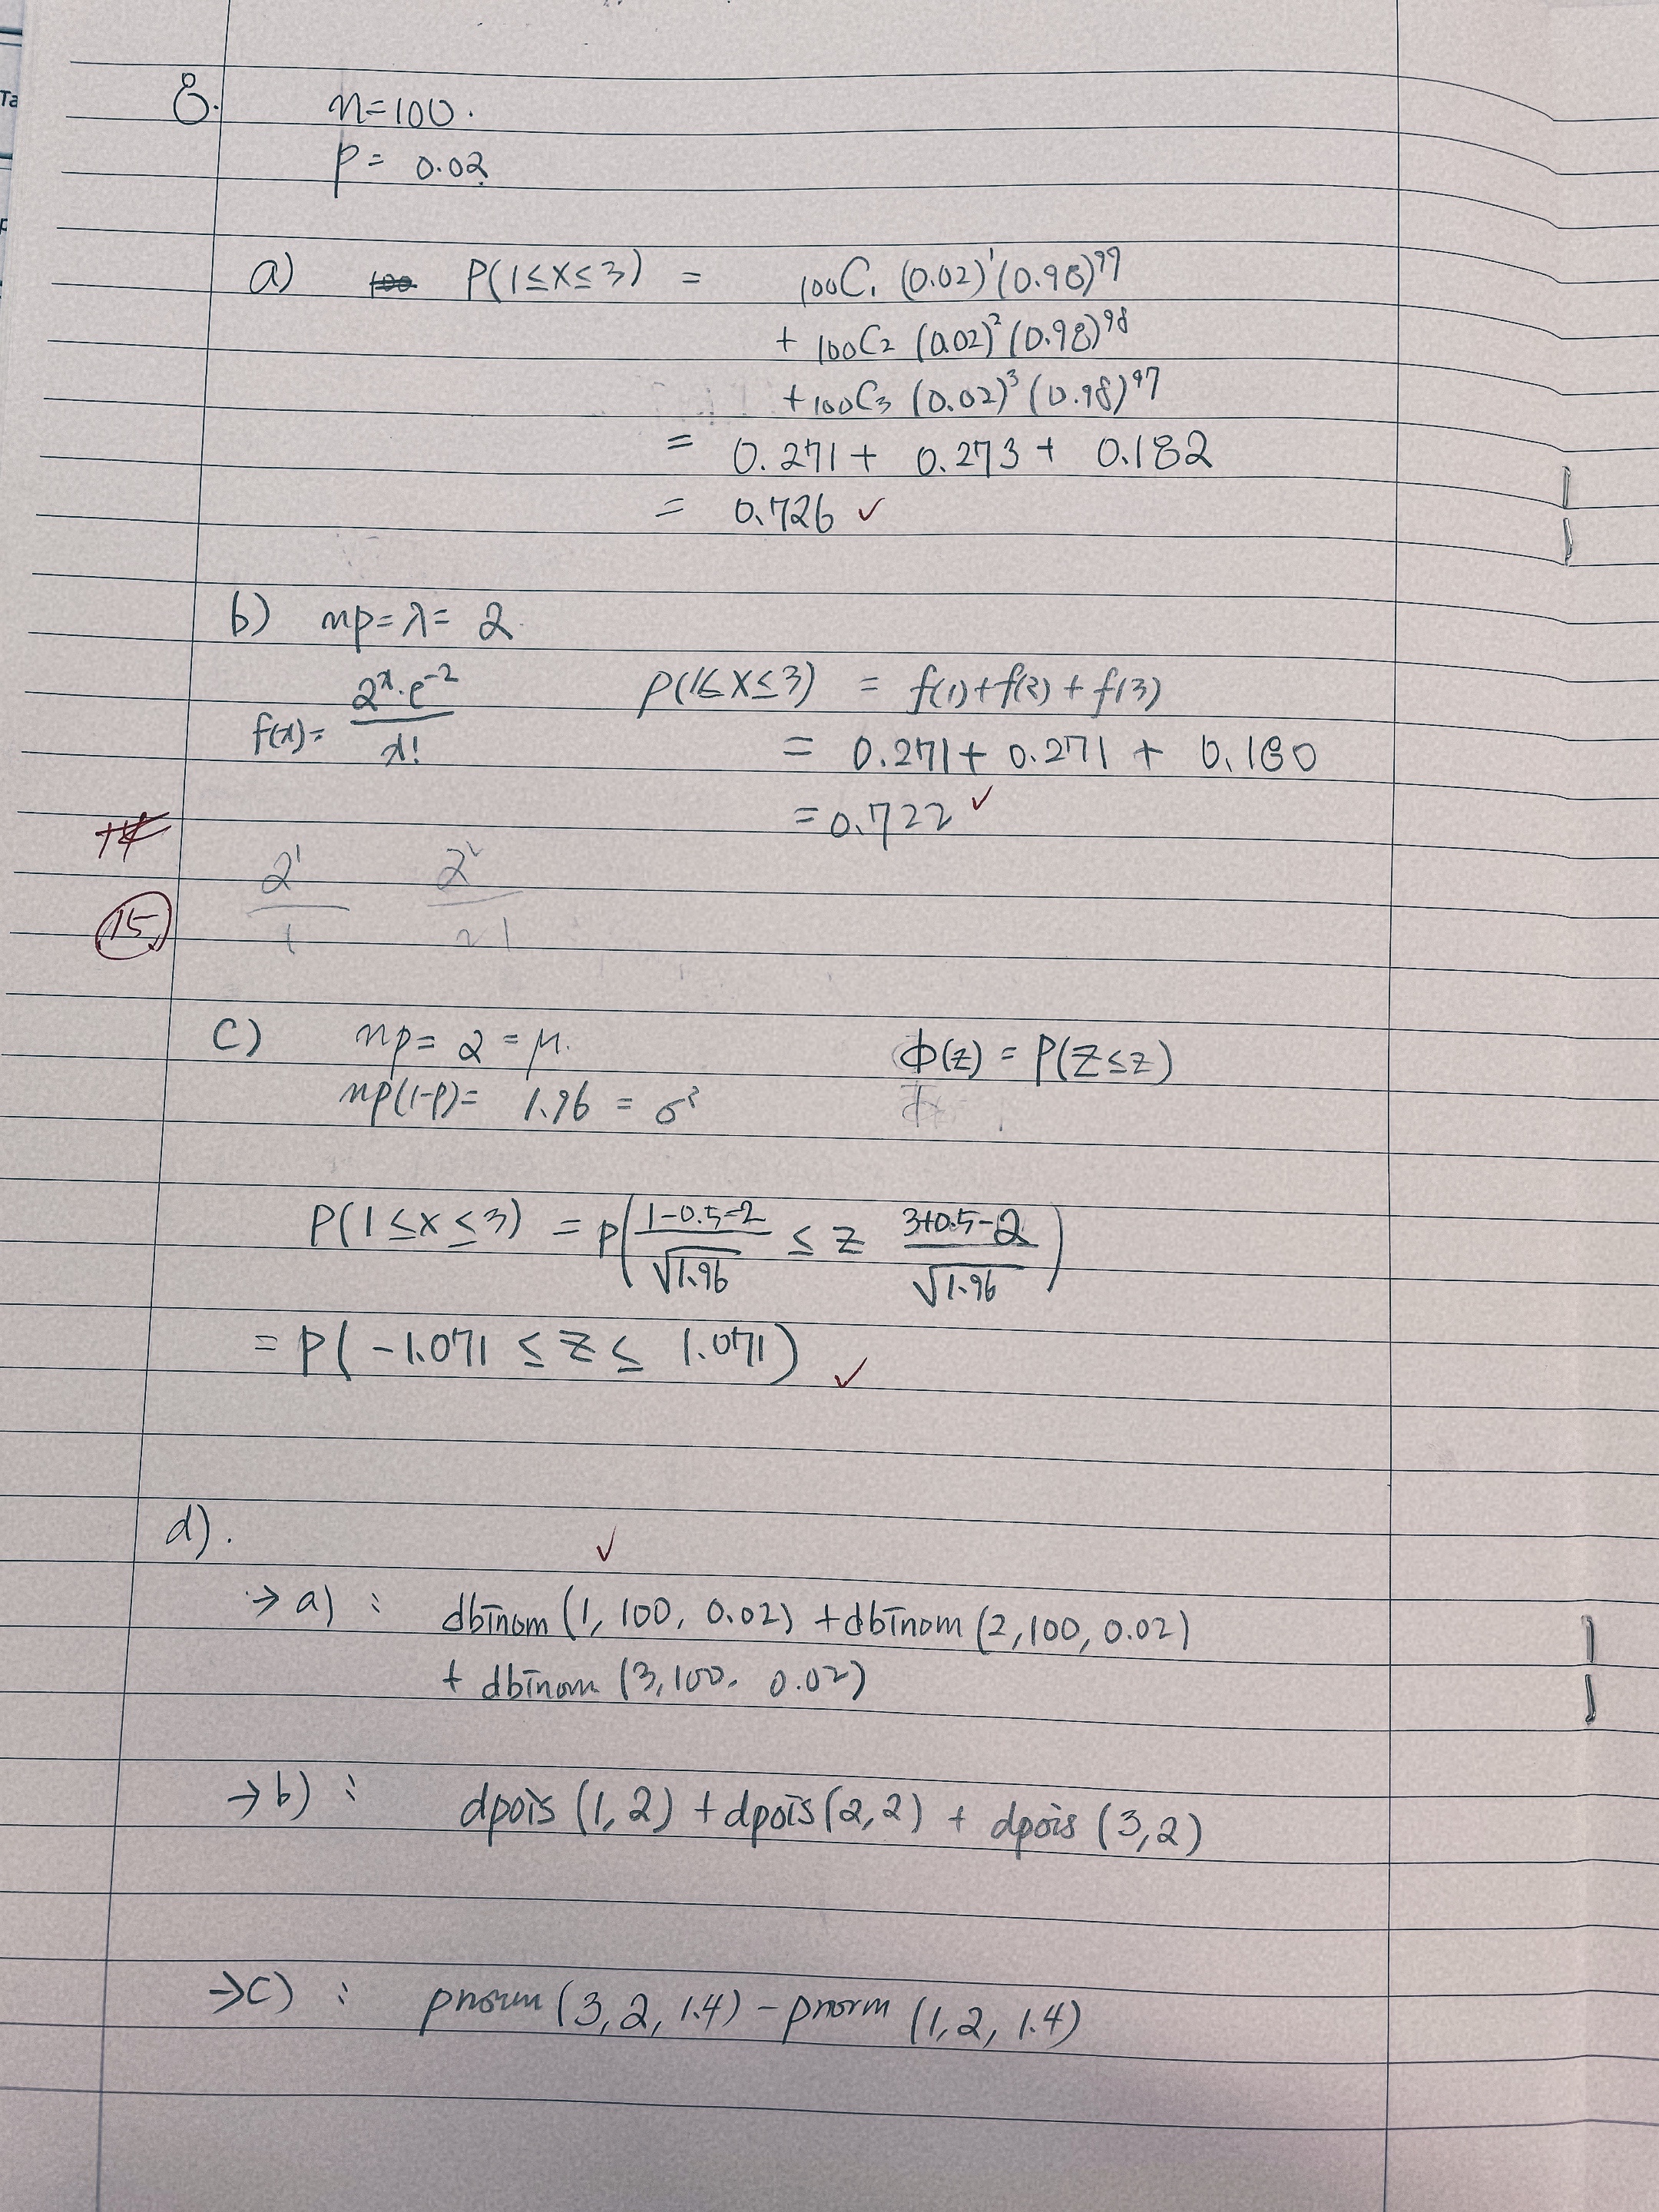 Ta
8. n=100.
p= 0.02
a) P(1≤X≤3) = ₁₀₀C₁ (0.02)¹(0.98)⁹⁹
+ ₁₀₀C₂ (0.02)²(0.98)⁹⁸
+ ₁₀₀C₃ (0.02)³(0.98)⁹⁷
= 0.271 + 0.273 + 0.182
= 0.726 ✓
b) np=λ= 2.
f(x)= 2ˣ·e⁻²/x! P(1≤X≤3) = f(1)+f(2)+f(3)
= 0.271+ 0.271 + 0.180
= 0.722 ✓
2¹/1 2²/21
15
c) np= 2 = μ. Φ(z) = P(Z≤z)
np(1-p)= 1.96 = σ²
P(1≤X≤3) = P((1-0.5-2)/√1.96 ≤ Z (3+0.5-2)/√1.96)
= P(-1.071 ≤ Z ≤ 1.071) ✓
d). ✓
→ a) : dbinom (1, 100, 0.02) + dbinom (2, 100, 0.02)
+ dbinom (3, 100, 0.02)
→ b) : dpois (1, 2) + dpois (2, 2) + dpois (3, 2)
→ c) : pnorm (3, 2, 1.4) - pnorm (1, 2, 1.4)